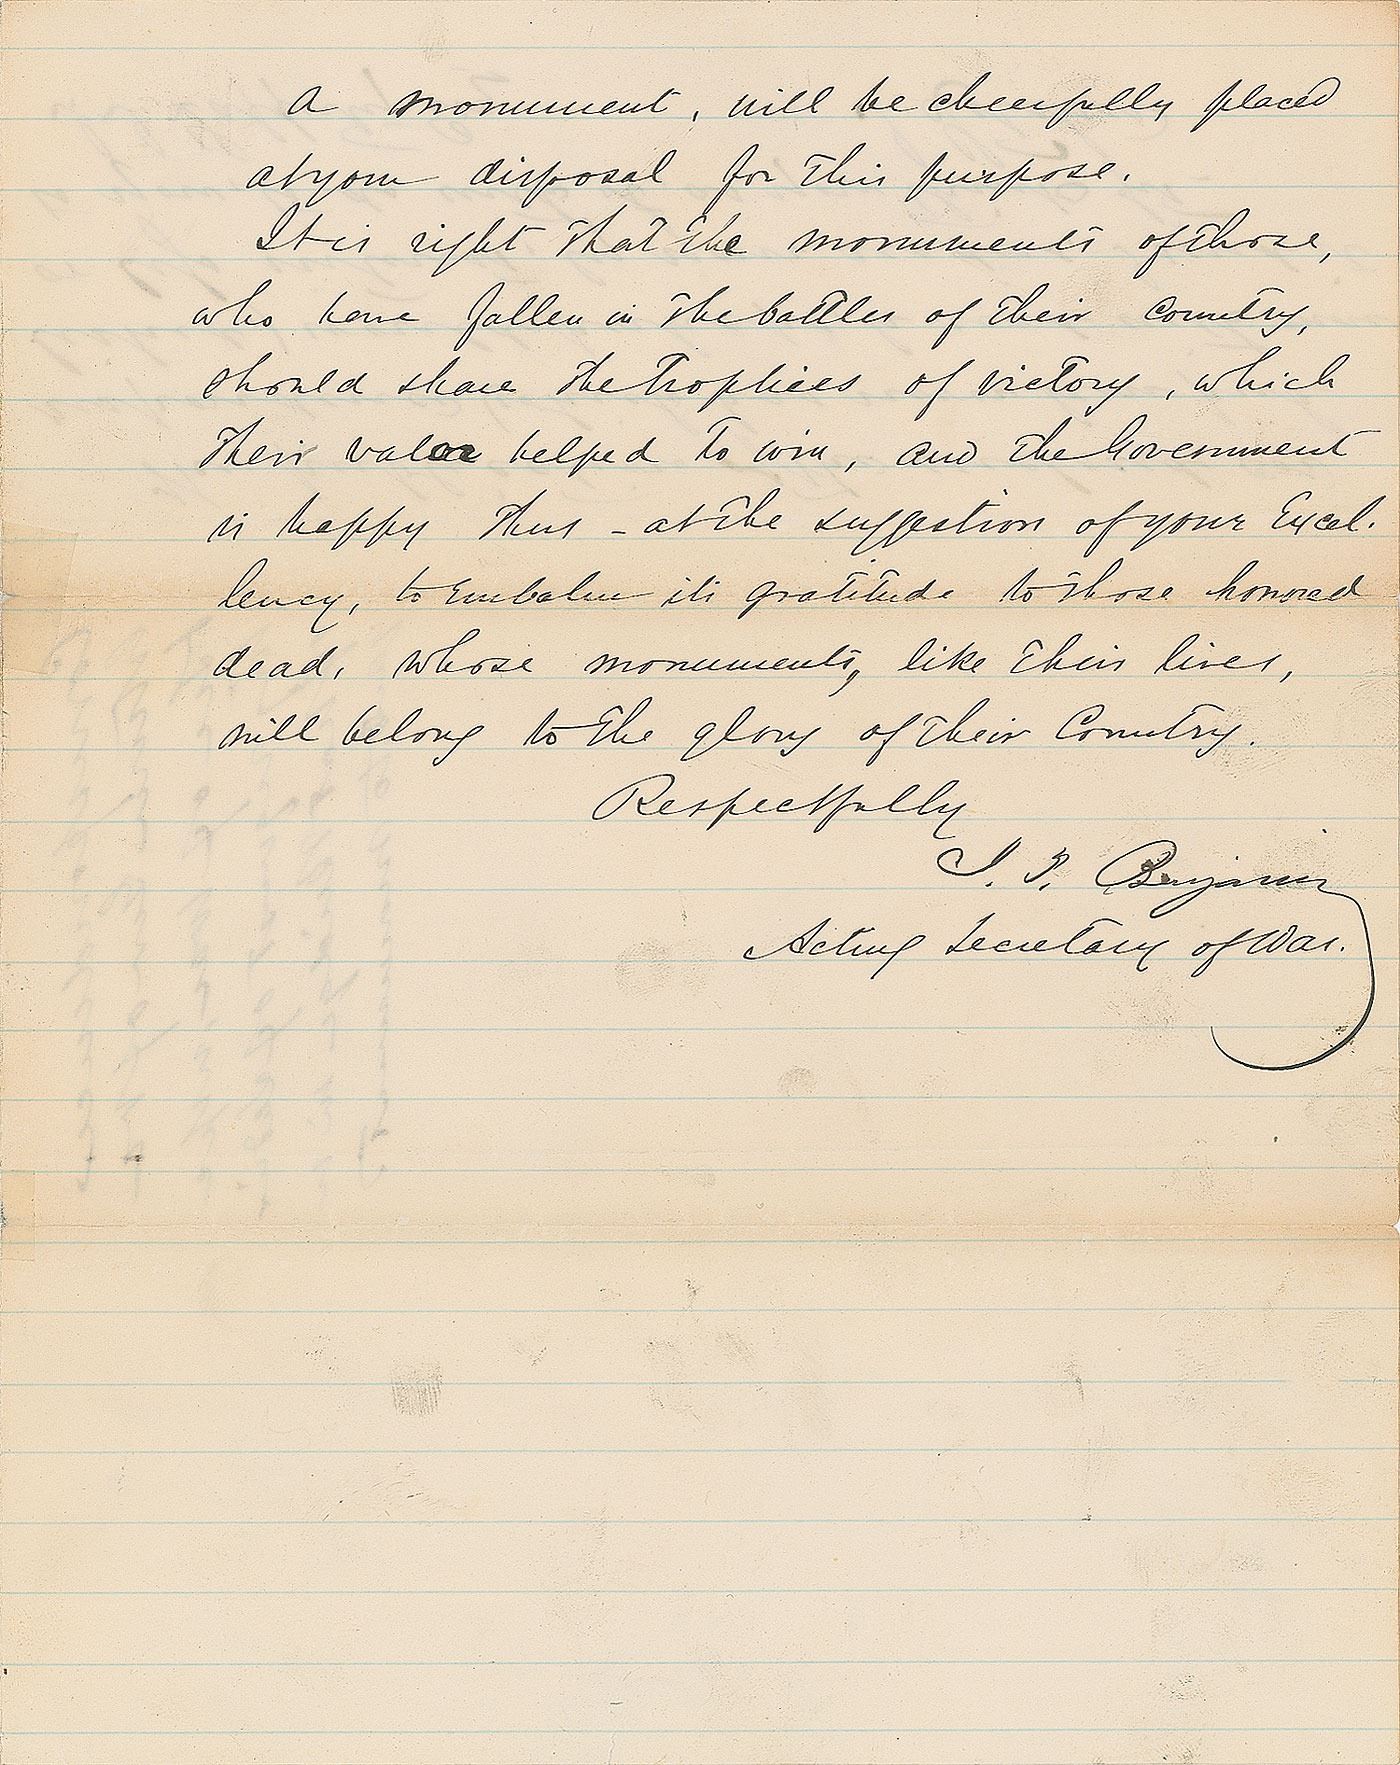 a monument, will be cheerfully placed
at your disposal for this purpose.
It is right that the monuments of those,
who have fallen in the battles of their country,
should share the trophies of victory, which
their valor helped to win, and the Government
is happy thus - at the suggestion of your Excel-
lency, to embalm its gratitude to those honored
dead, whose monuments, like their lives,
will belong to the glory of their Country.
Respectfully
J. P. Benjamin
Acting Secretary of War.